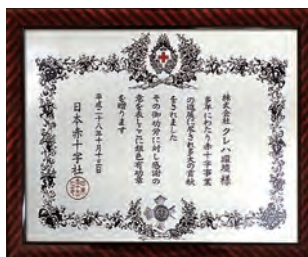 株式会社クレハ環境様
多年にわたり赤十字事業
の進展に尽され多大の貢献
をされました
その御功労に対し感謝の
意を表しここに銀色有功章
を贈ります
平成二十八年十月十三日
日本赤十字社